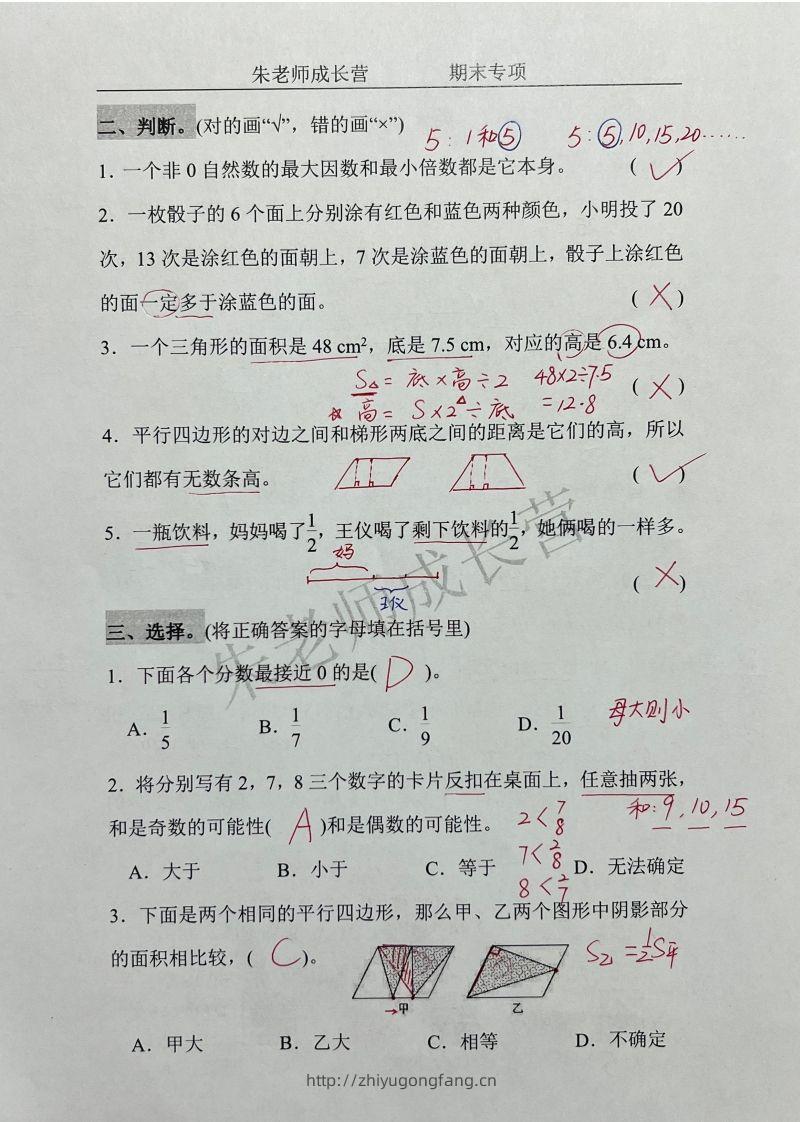 朱老师成长营 期末专项
二、判断。(对的画“√”，错的画“×”)
5：1和5 5：5,10,15,20……
1．一个非0自然数的最大因数和最小倍数都是它本身。 (√)
2．一枚骰子的6个面上分别涂有红色和蓝色两种颜色，小明投了20
次，13次是涂红色的面朝上，7次是涂蓝色的面朝上，骰子上涂红色
的面一定多于涂蓝色的面。 (×)
3．一个三角形的面积是48 cm²，底是7.5 cm，对应的高是6.4 cm。
S△=底×高÷2 48×2÷7.5 (×)
☆高△=S×2÷底 =12.8
4．平行四边形的对边之间和梯形两底之间的距离是它们的高，所以
它们都有无数条高。 (√)
5．一瓶饮料，妈妈喝了1/2，王仪喝了剩下饮料的1/2，她俩喝的一样多。
妈
王仪 (×)
三、选择。(将正确答案的字母填在括号里)
1．下面各个分数最接近0的是( D )。
A．1/5 B．1/7 C．1/9 D．1/20 母大则小
2．将分别写有2，7，8三个数字的卡片反扣在桌面上，任意抽两张，
和:9,10,15
和是奇数的可能性( A )和是偶数的可能性。 2<7 8
A．大于 B．小于 C．等于 D．无法确定
7<2 8
8<2 7
3．下面是两个相同的平行四边形，那么甲、乙两个图形中阴影部分
的面积相比较，( C )。 S乙=1/2S平
→甲 乙
A．甲大 B．乙大 C．相等 D．不确定
朱老师成长营
http://zhiyugongfang.cn